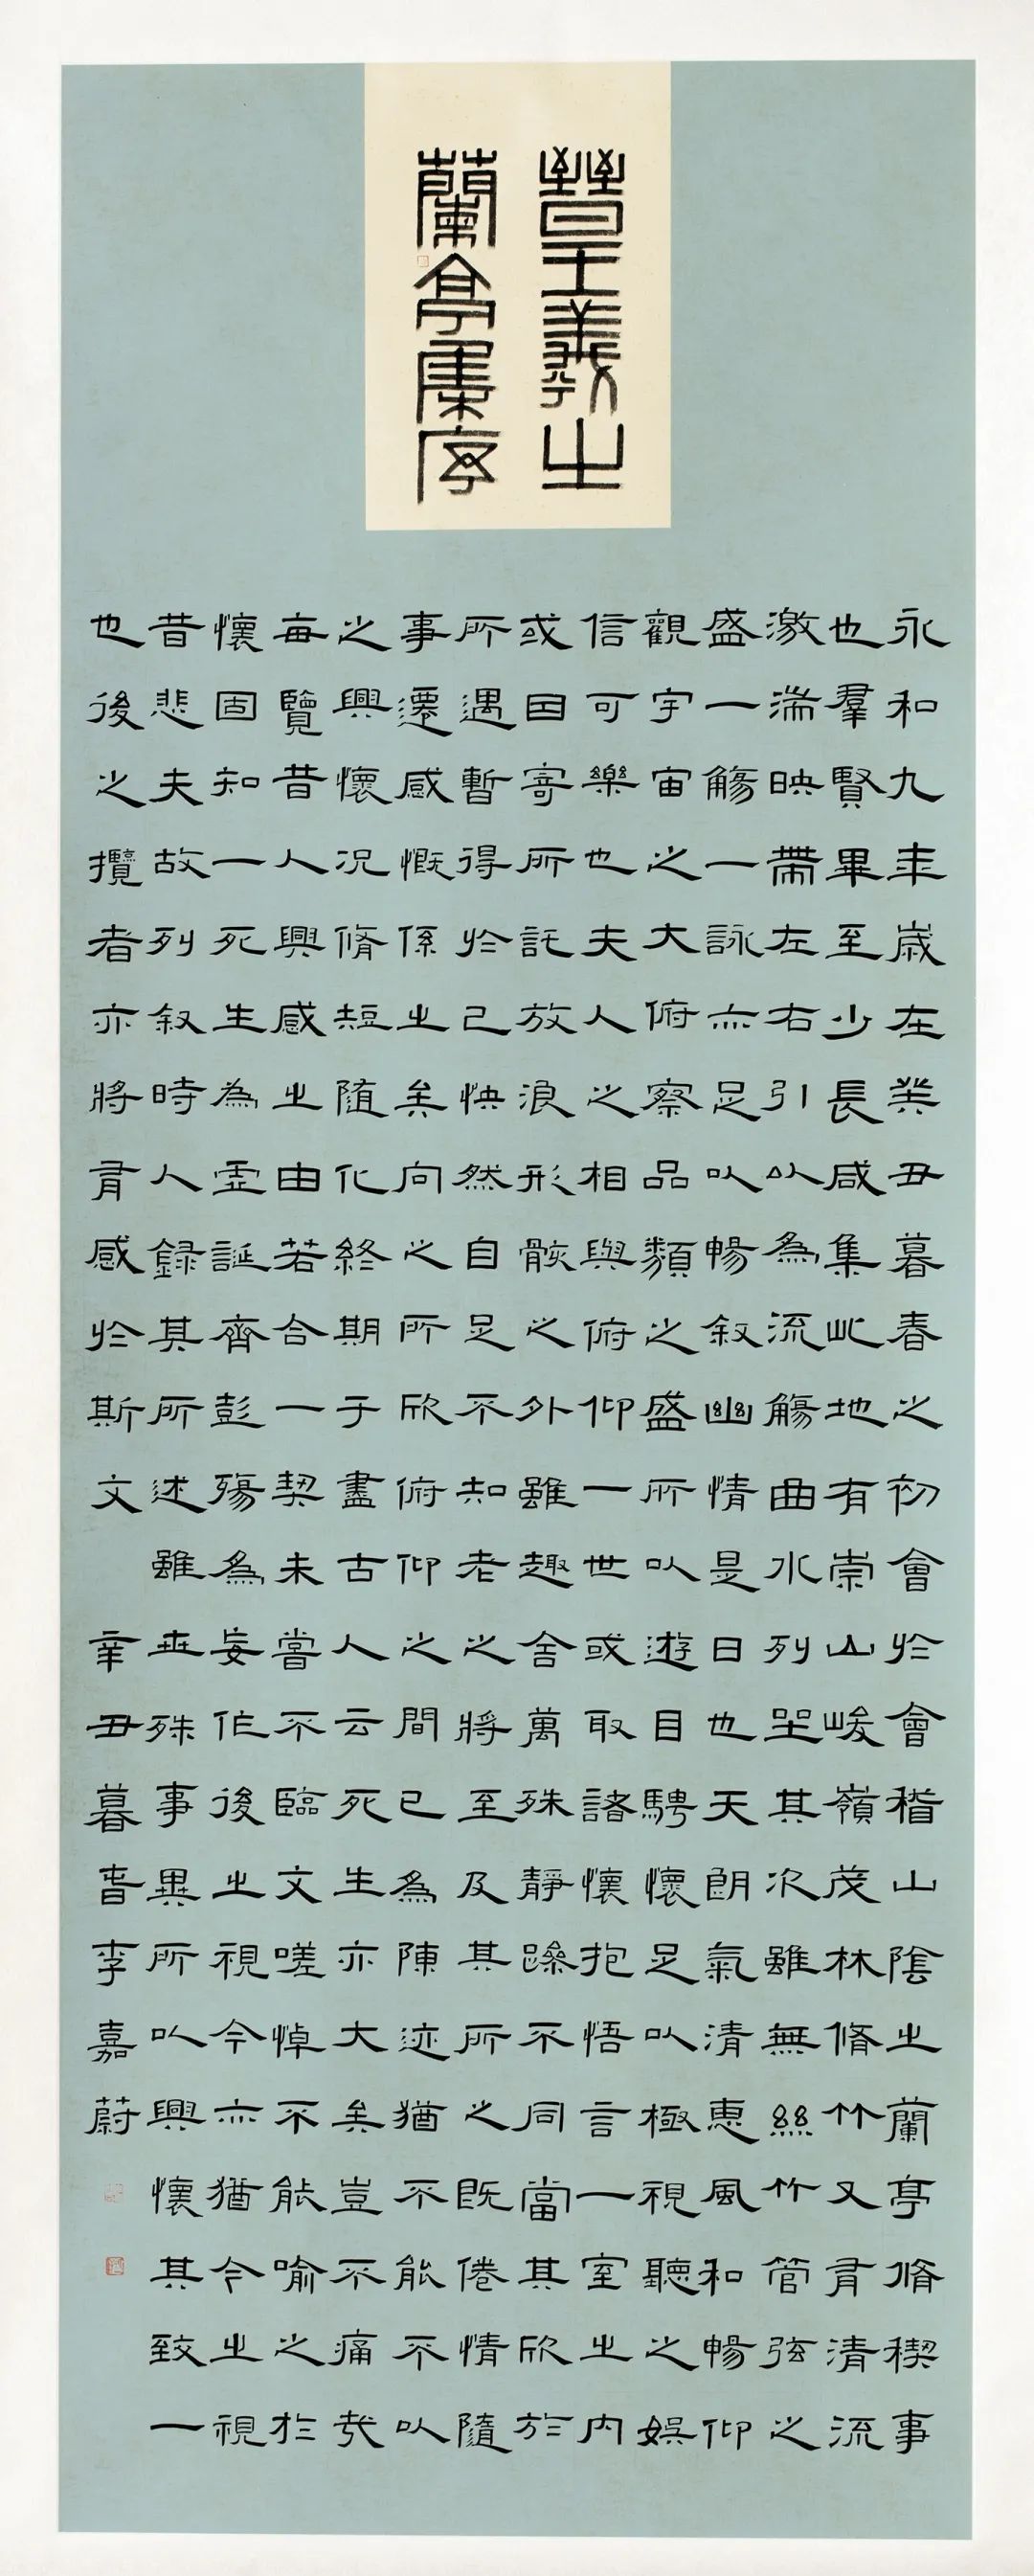 晉王羲之
蘭亭集序
永和九年歲在癸丑暮春之初會於會稽山陰之蘭亭脩禊事
也羣賢畢至少長咸集此地有崇山峻嶺茂林脩竹又有清流
激湍映帶左右引以為流觴曲水列坐其次雖無絲竹管弦之
盛一觴一詠亦足以暢叙幽情是日也天朗氣清惠風和暢仰
觀宇宙之大俯察品類之盛所以遊目騁懷足以極視聽之娛
信可樂也夫人之相與俯仰一世或取諸懷抱悟言一室之內
或因寄所託放浪形骸之外雖趣舍萬殊靜躁不同當其欣於
所遇暫得於己怏然自足不知老之將至及其所之既倦情隨
事遷感慨係之矣向之所欣俯仰之間已為陳迹猶不能不以
之興懷況脩短隨化終期于盡古人云死生亦大矣豈不痛哉
每覽昔人興感之由若合一契未嘗不臨文嗟悼不能喻之於
懷固知一死生為虛誕齊彭殤為妄作後之視今亦猶今之視
昔悲夫故列叙時人錄其所述雖世殊事異所以興懷其致一
也後之攬者亦將有感於斯文 辛丑暮春李嘉蔚